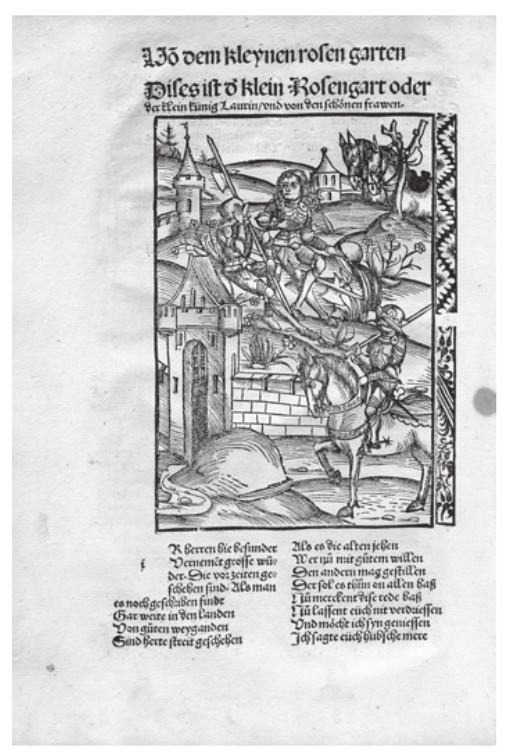 Vō dem kleynen rosen garten
Dises ist d̄ klein Rosengart oder
der klein künig Laurin/vnd von den schönen frawen.
i
R herren hie besunder
Vernemēt grosse wū⸗
der. Die vor zeiten ge⸗
schehen sind. Als man
es noch geschriben findt
Gar weite in den landen
Von gůten weyganden
Sind herte streit geschehen
Als es die alten jehen
Wer nū mit gůtem willen
Den andern mag gestillen
Der sol es thůn on allen haß
Nū merckent dise rede baß
Nū lassent eüch nit verdriessen
Vnd möcht ich syn geniessen
Ich sagte eüch hübsche mere